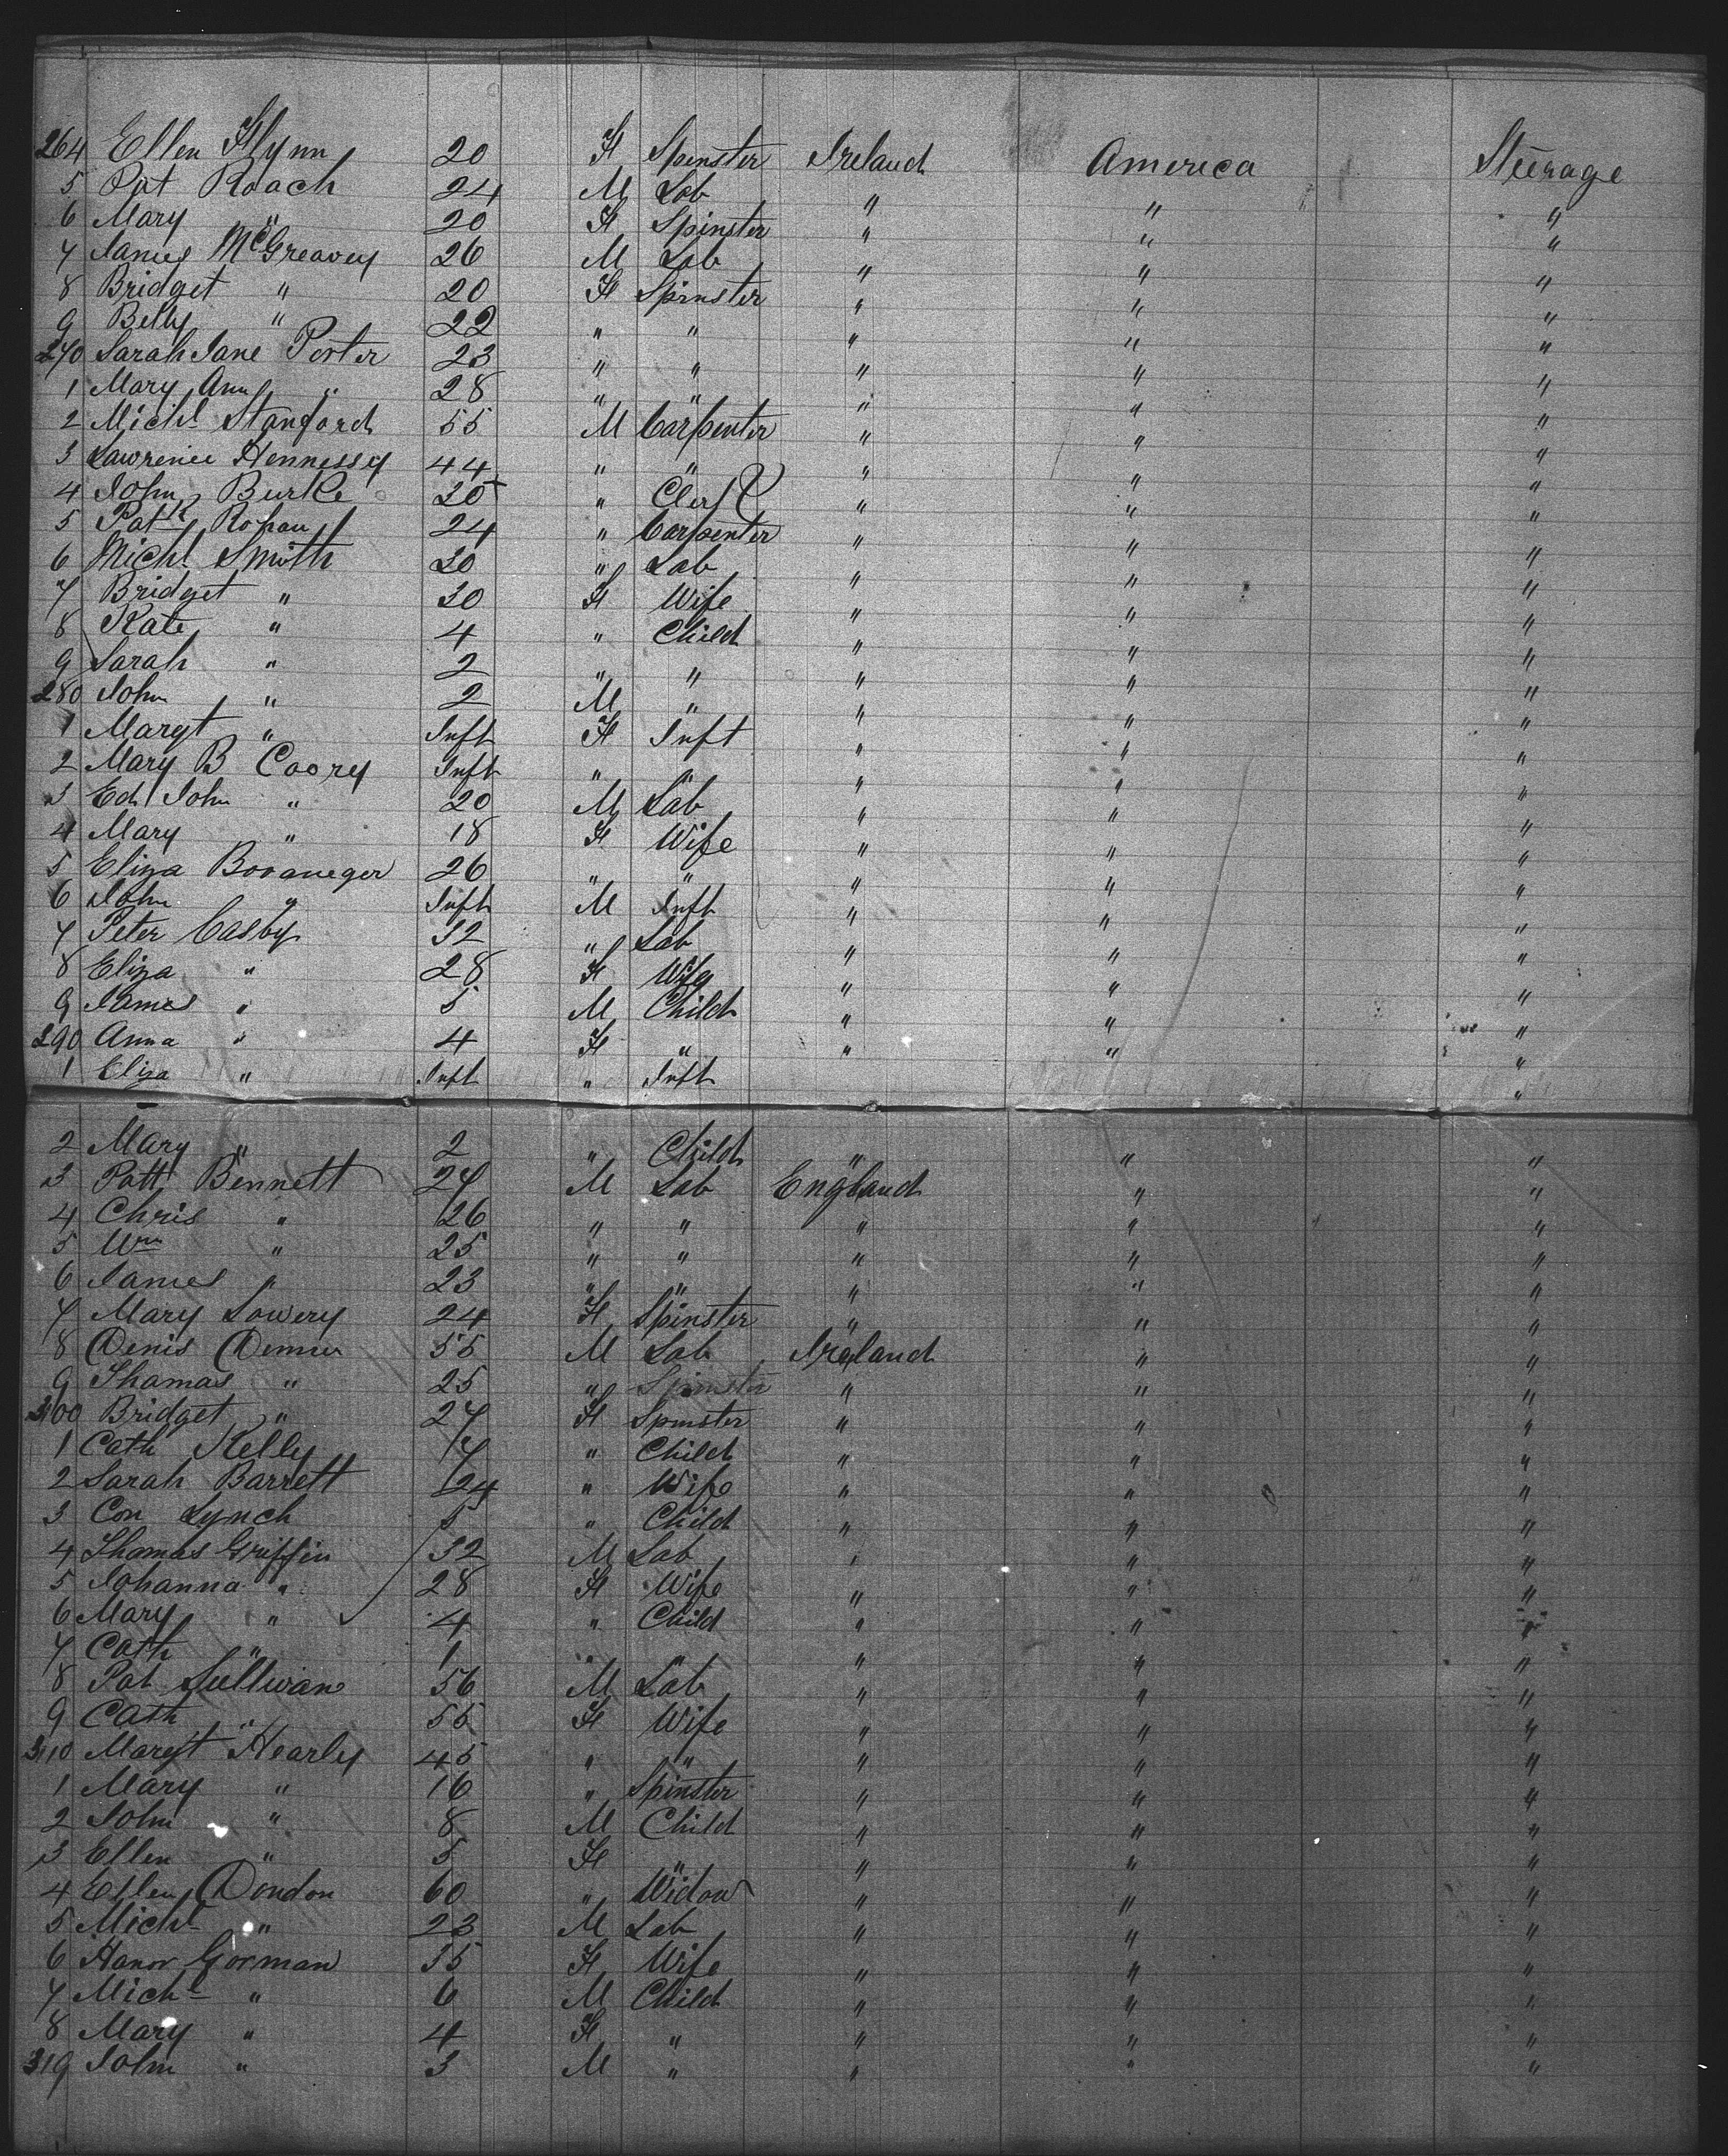 264 Ellen Flynn 20 F Spenster Ireland America Steerage
5 Pat Roach 24 M Lab " " "
6 Mary " 20 F Spinster " " "
7 James McGreavey 26 M Lab " " "
8 Bridget " 20 F Spinster " " "
9 Belly " 22 " " " " "
270 Sarah Jane Porter 23 " " " " "
1 Mary Ann " 28 " " " " "
2 Michl Stanford 55 M Carpenter " " "
3 Lawrence Hennessey 44 " " " " "
4 John Burke 20 " Clerk " " "
5 Patk Rohan 24 " Carpenter " " "
6 Michl Smith 30 " Lab " " "
7 Bridget " 30 F Wife " " "
8 Kate " 4 " Child " " "
9 Sarah " 2 " " " " "
280 John " 2 M " " " "
1 Margt " Inft F Inft " " "
2 Mary B Coory Inft " " " " "
3 Ed John " 20 M Lab " " "
4 Mary " 18 F Wife " " "
5 Eliza 26 " " " " "
6 John " Inft M Inft " " "
7 Peter Casby 32 " Lab " " "
8 Eliza " 28 F Wife " " "
9 James " 5 M Child " " "
290 Anna " 4 F " " " "
1 Eliza " Inft " Inft "
2 Mary " 2 " Child " " "
3 Patt Bennett 27 M Lab England " "
4 Chris " 26 " " " " "
5 Wm " 25 " " " " "
6 James " 23 " " " " "
7 Mary Lowery 24 F Spinster " " "
8 Denis 55 M Lab Ireland " "
9 Thomas " 25 " Spinster " " "
300 Bridget " 27 F Spinster " " "
1 Cath Kelly 7 " Child " " "
2 Sarah Barrett 24 " Wife " " "
3 Con Lynch 5 " Child " " "
4 Thomas Griffin 32 M Lab " " "
5 Johanna " 28 F Wife " " "
6 Mary " 4 " Child " " "
7 Cath " 1 " " " " "
8 Pat Sullivan 56 M Lab " " "
9 Cath " 55 F Wife " " "
310 Margt Hearly 45 " " " " "
1 Mary " 16 " Spinster " " "
2 John " 8 M Child " " "
3 Ellen " 5 F " " " "
4 Ellen Dondon 60 " Widow " " "
5 Michl " 23 M Lab " " "
6 Hanor Gorman 35 F Wife " " "
7 Michl " 6 M Child " " "
8 Mary " 4 F " " " "
319 John " 3 M " " " "